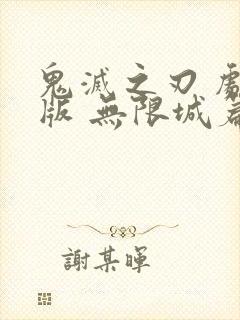 鬼滅之刃 劇
版 無限城篇
謝某暉